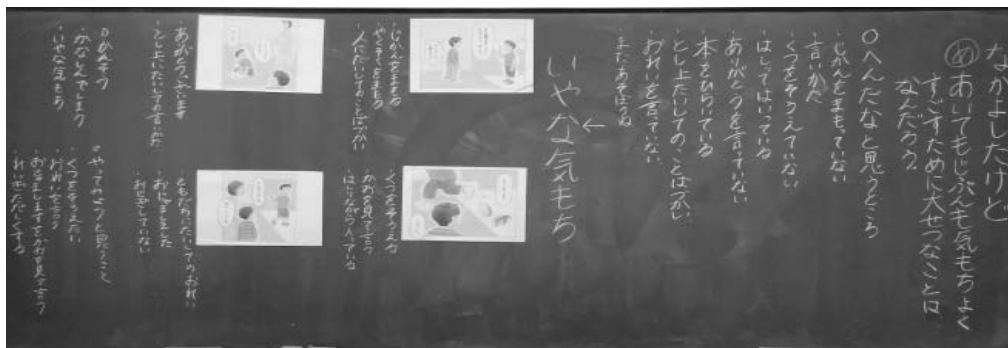 なかよしだけど
めあいてもじぶんも気もちよく
すごすために大せつなことは
なんだろう。
○へんだなと思うところ
・じかんをまもっていない
・言いかた
・くつをそろえていない
・はしってはいっている
・ありがとうを言っていない
・本をひらいている
・とし上たいしてのことばづかい
・おれいを言っていない
またあそぼうね
←
いやな気もち
・じかんをまもる
・やくそくをまもる
・人にたいすることばづかい
・くつをそろえる
・かおを見て言う
・はしりながら入っている
・とし上にたいしての言いかた
・ともだちにたいしてのおれい
・おじゃましました
かなしんでしまう
いやな気もち
○やってみようと思うこと
・くつをそろえたい
・おれいを言う
・おじゃましますをかお見て言う
・れいぎただしくする